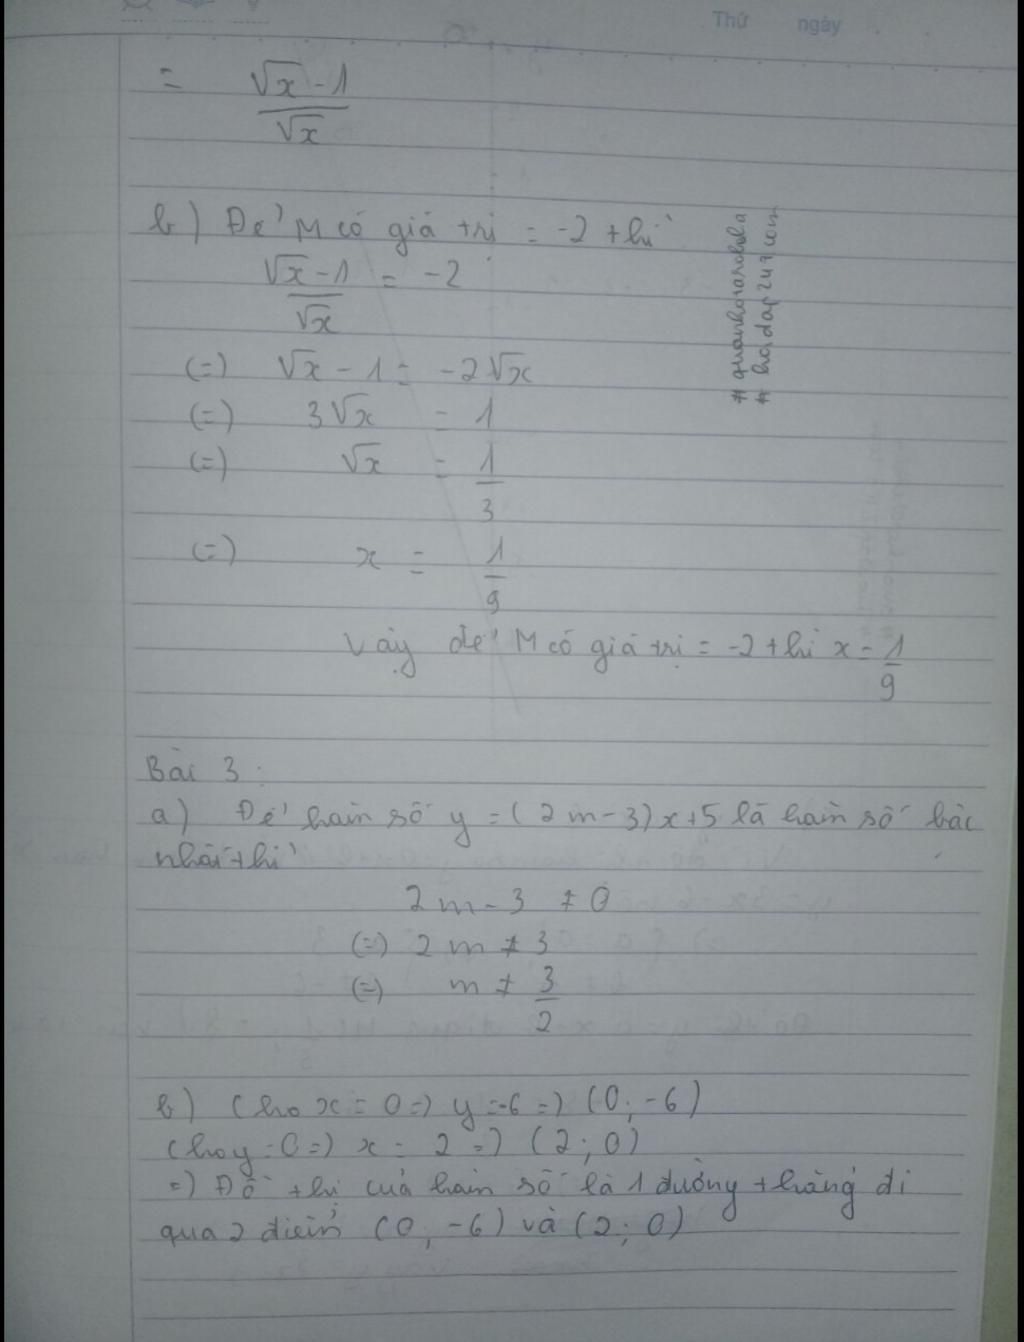 Thứ ngày
= √x - 1 / √x
b) Để M có giá trị = -2 thì
√x - 1 / √x = -2
(=) √x - 1 = -2√x
(=) 3√x = 1
(=) √x = 1/3
(=) x = 1/9
Vậy để M có giá trị = -2 thì x = 1/9
Bài 3:
a) Để hàm số y = (2m-3)x+5 là hàm số bậc
nhất thì
2m - 3 ≠ 0
(=) 2m ≠ 3
(=) m ≠ 3/2
b) Cho x = 0 =) y = -6 =) (0; -6)
Cho y = 0 =) x = 2 =) (2; 0)
=) Đồ thị của hàm số là 1 đường thẳng đi
qua 2 điểm (0; -6) và (2; 0)
# hoidap247.com